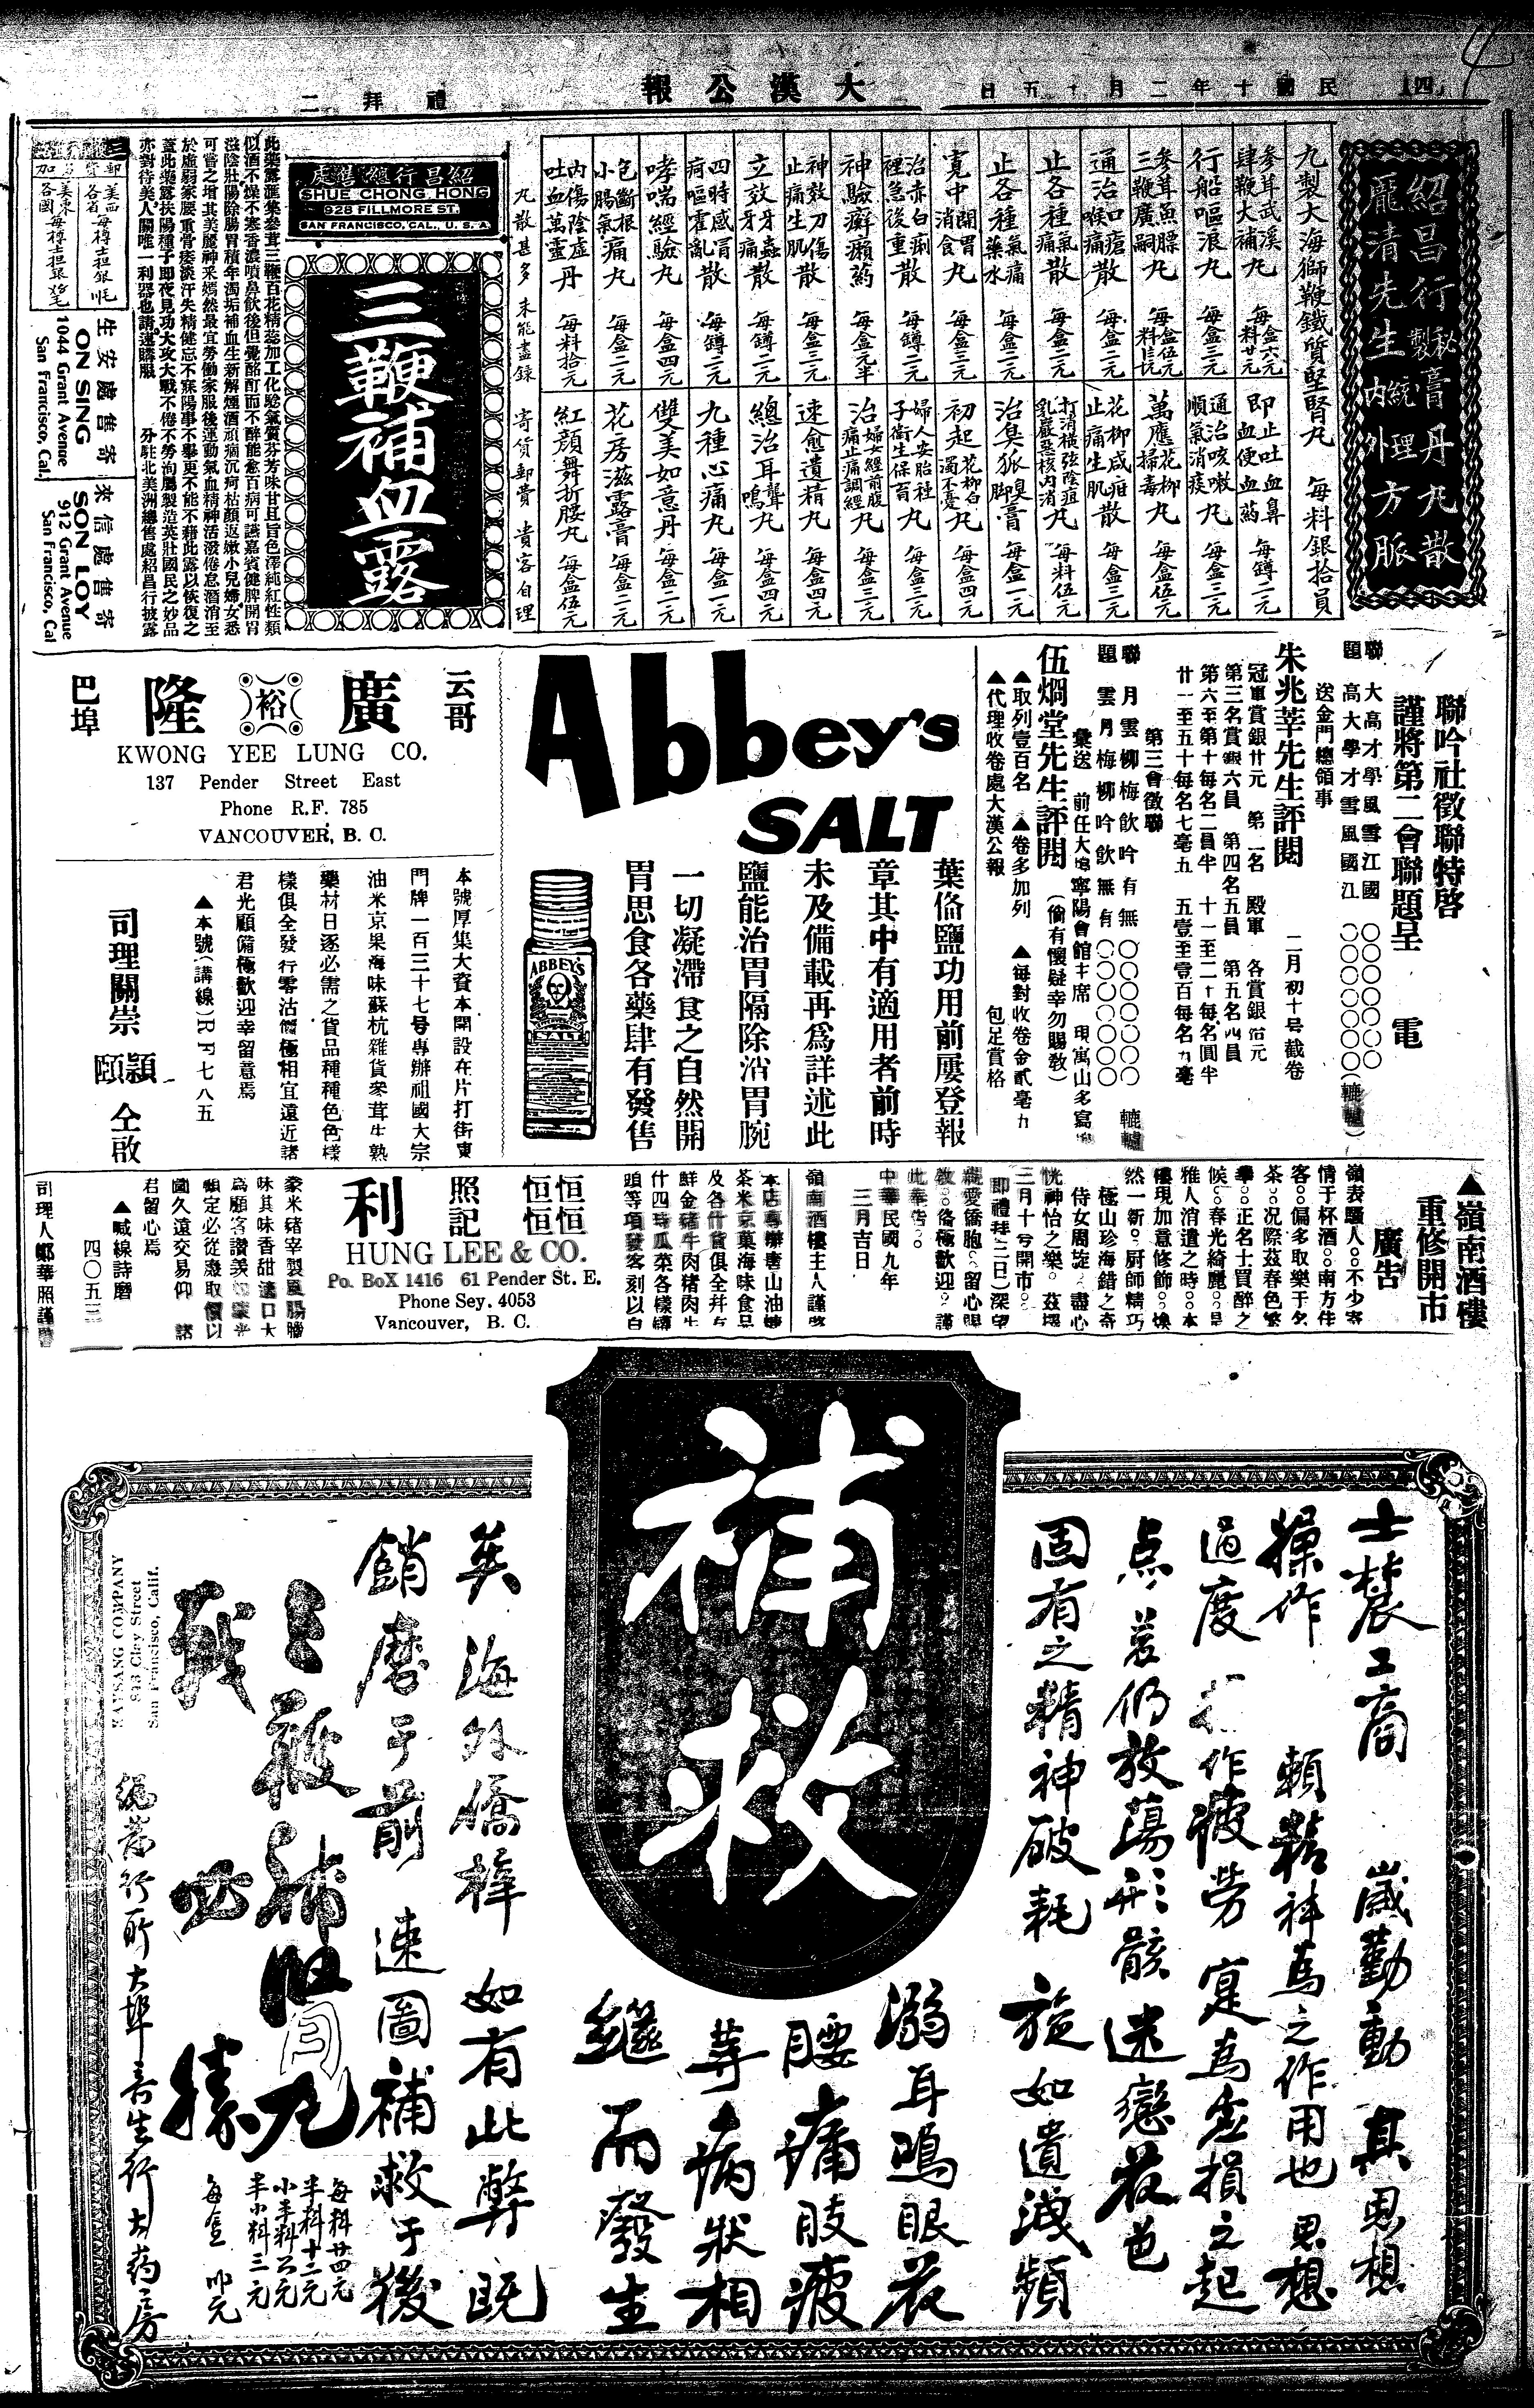 大漢公報
民國十年二月十五日
禮拜二
紹昌行秘製膏丹丸散
龐清先生統理內外方脈
九製大海獅鞭鐵質堅腎丸 每料銀拾員
參茸武溪肆鞭大補丸
行船嘔浪丸 每盒三元
參茸魚膘三鞭廣嗣丸
通治口瘡喉痛散 每盒二元
止各種氣痛散 每盒三元
止各種氣痛藥水 每盒二元
寬中開胃消食丸 每盒二元
治赤白痢裡急後重散 每罇二元
神驗癬癩葯 每盒元半
神效刀傷止痛生肌散 每盒三元
立效牙蟲牙痛散 每罇二元
四時感冒痾嘔霍亂散 每罇二元
哮喘經驗丸 每盒四元
包斷根小腸氣痛丸 每盒二元
內傷陰虛吐血萬靈丹 每料拾元
丸散甚多未能盡錄
即止吐血鼻血便血葯 每罇二元
通治咳嗽順氣消痰丸 每盒三元
萬應花柳掃毒丸 每盒伍元
花柳咸疳止痛生肌散 每盒三元
打消橫弦陰疽乳巖惡核內消丸 每料伍元
治臭狐臭脚膏 每盒一元
初起花柳白濁不憂丸 每盒二元
婦人安胎杜子衛生保育丸 每盒三元
治婦女經前腹痛止痛調經丸 每盒四元
速愈遺精丸 每盒四元
總治耳聾耳鳴丸 每盒四元
九種心痛丸 每盒二元
雙美如意丹 每盒二元
花房滋露膏 每盒二元
紅顏舞折腰丸 每盒伍元
寄貨郵費 貴客自理
紹昌行總售處
SHUE CHONG HONG
928 FILLMORE ST.
SAN FRANCISCO, CAL., U. S. A.
三鞭補血露
此藥露滙集參茸三鞭百花精蕊加工化騐氣質芬芳味甘且旨色澤純紅性類
似酒不燥不寒香濃噴鼻飲後但覺酩酊而不醉能愈百病可讌嘉賓健脾開胃
滋陰壯陽除腸胃積年濁垢補血生新解煙酒頑痼沉疴枯顏返嫩小兒婦女悉
可嘗之增其美麗神采嫣然最宜勞働家服後運動氣血精神活潑倦怠潛消至
於虛癆家腰重骨痿淡汗失精健忘不寐陽事不舉更不能不藉此露以恢復之
蓋此藥露扶陽種子即夜見功大攻大戰不倦不勞洵屬製造英壯國民之妙品
亦對待美人關唯一利器也請速購服 分駐北美洲總售處紹昌行披露
生安處售寄
ON SING
1044 Grant Avenue
San Francisco, Cal.
來信處售寄
SON LOY
912 Grant Avenue
San Francisco, Cal
聯吟社徵聯特啓
謹將第二會聯題呈 電
聯題 大高才學風雪江國 ○○○○○○○
高大學才雪風國江 ○○○○○○○(轆轤)
送金門總領事
朱兆莘先生評閱 二月初十号截卷
冠軍賞銀廿元 第二名 殿軍 各賞銀拾元
第三名賞銀六員 第四名五員 第五名四員
第六至第十每名二員半 十一至二十每名員半
廿一至五十每名七毫五 五壹至壹百每名九毫
第三會徵聯
聯題 月雲柳梅飲吟有無 ○○○○○○○ 轆轤
雲月梅柳吟飲無有 ○○○○○○○
彙送 前任大埠寧陽會館主席 現寓山多寫
伍烱堂先生評閱 (倘有懷疑幸勿賜敎)
▲取列壹百名 ▲卷多加列 ▲每對收卷金貳毫九
▲代理收卷處大漢公報 包足賞格
Abbey's
SALT
ABBEY'S
SALT
葉俻鹽功用前屢登報
章其中有適用者前時
未及備載再爲詳述此
鹽能治胃隔除消胃腕
一切凝滯食之自然開
胃思食各藥肆有發售
云哥
廣裕隆
巴埠
KWONG YEE LUNG CO.
137 Pender Street East
Phone R.F. 785
VANCOUVER, B. C.
本號厚集大資本開設在片打街東
門牌一百三十七号專辦祖國大宗
油米京果海味蘇杭雜貨參茸生熟
藥材日逐必需之貨品種種色色樣
樣俱全發行零沽價極相宜遠近諸
君光顧備極歡迎幸留意焉
▲本號(講線)R.F.七八五
司理關崇 穎頤 仝啟
▲嶺南酒樓
重修開市
廣告
嶺表騷人○不少寄
情于杯酒○○南方佳
客○○偏多取樂于名
茶○○况際茲春色繁
華○○正名士買醉之
候○○春光綺麗○○是
雅人消遣之時○○本
樓現加意修飾○○煥
然一新○厨師精巧
極山珍海錯之奇
侍女周旋○盡心
恍神怡之樂○ 茲擇
三月十号開市○○
(即禮拜三日)深望
親愛僑胞○留心賜
敎○○俻極歡迎○謹
此奉告○○
中華民國九年
三月吉日
嶺南酒樓主人謹啓
恒恒恒恒
照記
利
HUNG LEE & CO.
Po. BoX 1416 61 Pender St. E.
Phone Sey. 4053
Vancouver, B. C.
本店專辦唐山油糖
茶米京菓海味食品
及各什貨俱全幷有
鮮金豬牛肉猪肉生
什四時瓜菜各樣罐
頭等項發客刻以自
君留心焉
▲喊線詩磨
四〇五三
補救
士農工商 歲勤動 真思想
操作 賴精神爲之作用也 思想
過度 作疲勞 寔爲虛損之起
点 若仍放蕩形骸 迷戀花色
固有之精神破耗 旋如遺洩頻
溺耳鳴眼花
腰痛肢疲
等病狀相
繼而發生
矣 海外僑梓 如有此弊 既
銷磨于前 速圖補救于後
三鞭補腎丸
戰必勝
每料廿四元
半料十二元
小半料六元
半小料三元
SAN FRANCISCO
總發行所大埠壽生行大药房